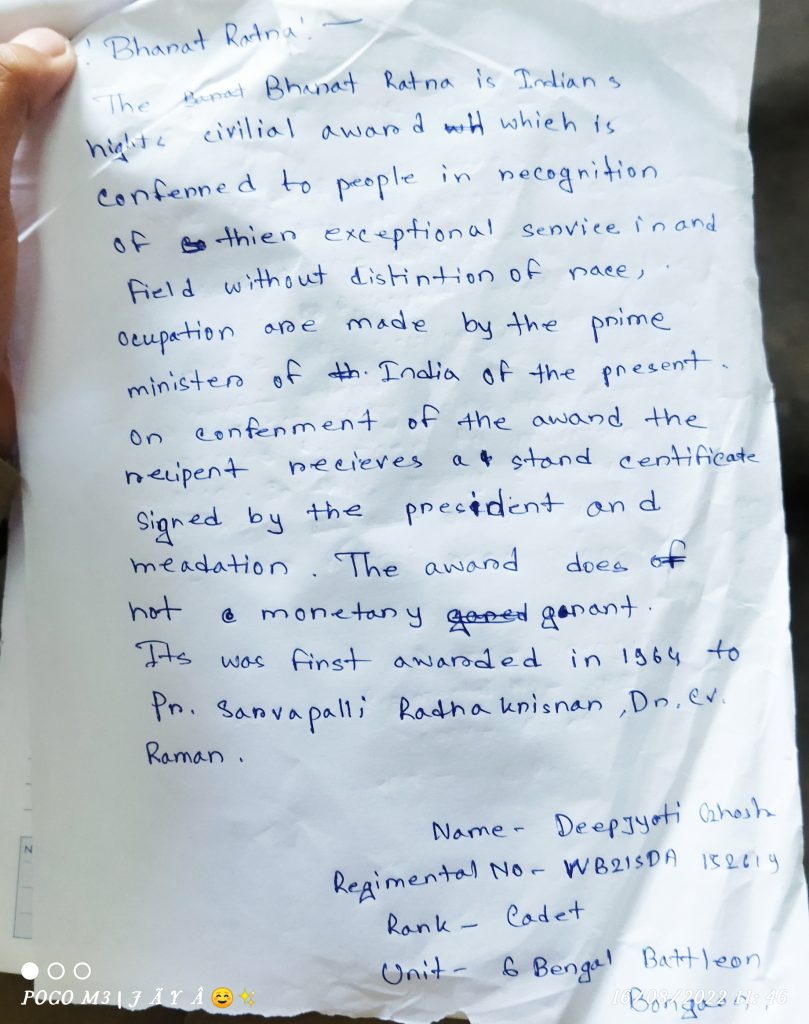 'Bharat Ratna' :-
The Barat Bharat Ratna is Indian s
highte civilial award which is
conferred to people in recognition
of thier exceptional service in and
field without distintion of race,
ocupation are made by the prime
minister of th. India of the present.
on conferment of the award the
recipent recieves a stand certificate
signed by the president and
meadation. The award does of
not monetary garant.
Its was first awaroded in 1964 to
Pr. Sarvapalli Radhakrisnan, Dr. cv.
Raman.
Name - Deepjyoti Ghosh
Regimental No - WB21SDA 152619
Rank - Cadet
Unit - 6 Bengal Battleon
POCO M3 | J Ã Y Â 😊✨
16/08/2022 11:46